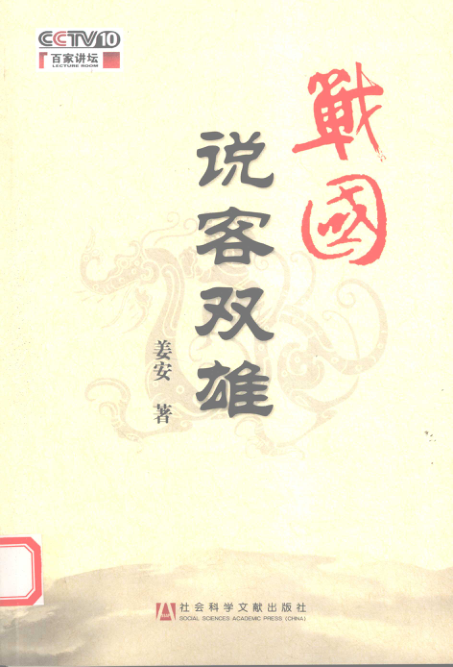 CCTV10
百家讲坛
LECTURE ROOM
戰國
说客双雄
姜安 著
社会科学文献出版社
SOCIAL SCIENCES ACADEMIC PRESS (CHINA)